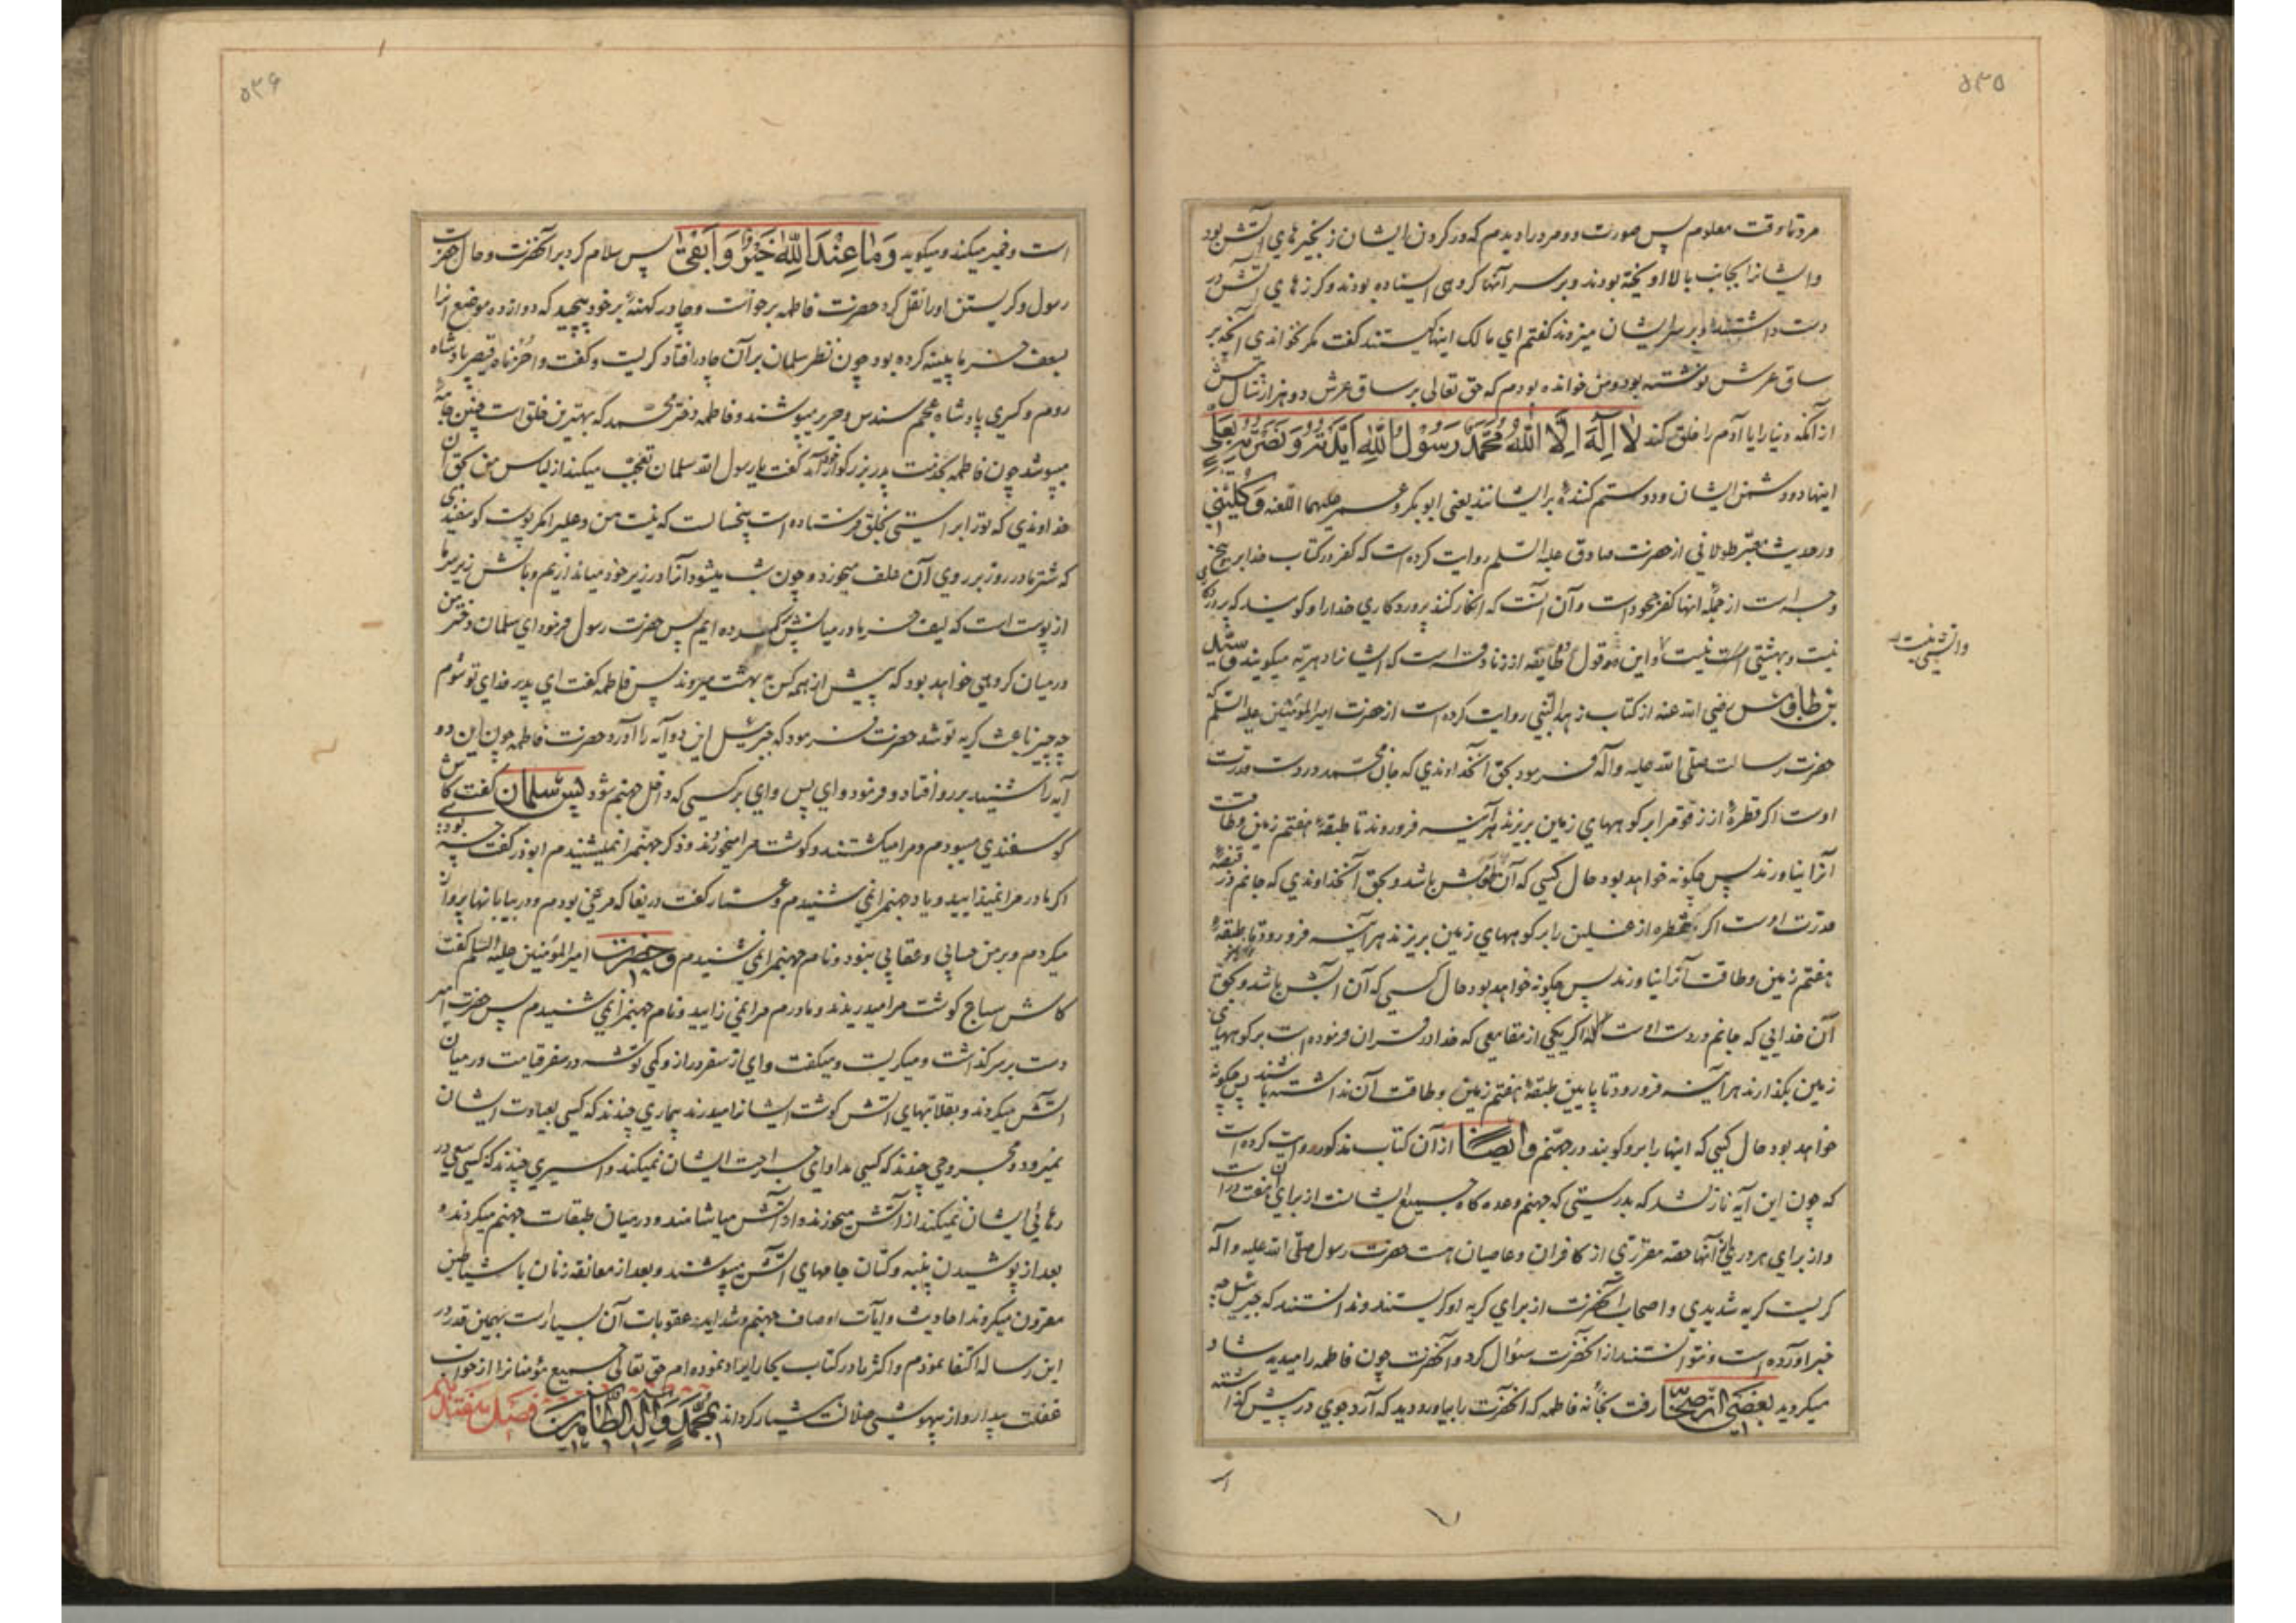 ۵۳۵
مرد تا وقت معلوم پس صورت دو مرد را دیدم که در گردن ایشان زنجیرهای آتش بود
و ایشانرا بجانب بالا اویخته بودند و بر سر آنها گروهی ایستاده بودند و گرزهای آتش در
دست داشتند و بر سر ایشان میزدند گفتم ای مالک اینها کیستند گفت مگر نخواندی آنچه بر
ساق عرش نوشته بود و من خوانده بودم که حق تعالی بر ساق عرش دو هزار سال پیش
از آنکه دنیا را یا آدم را خلق کند لا اله الا الله محمد رسول الله ایدته و نصرته بعلی
اینها دو دشمن ایشان و دو ستم کننده بر ایشانند یعنی ابو بکر و عمر علیهما اللعنه و کلینی
در حدیث معتبر طولانی از حضرت صادق علیه السلم روایت کرده است که کفر در کتاب خدا بر پنج
وجه است از جمله انها کفر جحود است و آن انست که انکار کنند پروردگاری خدا را و گویند که پروردگاری
نیست و بهشتی نیست و این قول دو طایفه از زنادقه است که ایشانرا دهریه میگویند و سید
و آتشی نیست
بن طاوس رضی الله عنه از کتاب زهد النبی روایت کرده است از حضرت امیر المؤمنین علیه السلم که
حضرت رسالت صلی الله علیه و آله فرمود بحق آنخداوندی که جان محمد در دست قدرت
اوست اگر قطرهٔ از زقوم را بر کوههای زمین بریزند هر آینه فرو روند تا طبقه هفتم زمین و طاقت
آنرا نیاورند پس چگونه خواهد بود حال کسی که آن طعامش باشد و بحق آنخداوندی که جانم در قبضه
قدرت اوست اگر قطره از غسلین را بر کوههای زمین بریزند هر آینه فرو رود تا طبقه
هفتم زمین و طاقت آنرا نیاورند پس چگونه خواهد بود حال کسی که آن آبش باشد و بحق
آن خدایی که جانم در دست اوست که اگر یکی از مقامعی که خدا در قران فرموده است بر کوههای
زمین بگذارند هر آینه فرو رود تا پایین طبقهٔ هفتم زمین و طاقت آن نداشته باشند پس چگونه
خواهد بود حال کسی که اینها را بر او کوبند در جهنم و ایضا از آن کتاب مذکور روایت کرده است
که چون این آیه نازل شد که بدرستی که جهنم وعده گاه جمیع ایشانست از برای آن هفت در است
و از برای هر دری از آنها حصه مقرری از کافران و عاصیان هست حضرت رسول صلی الله علیه و آله
گریست گریه شدیدی و اصحاب آنحضرت از برای گریه او گریستند و ندانستند که جبرئیل چه
خبر اورده است و نتوانستند از آنحضرت سؤال کرد و آنحضرت چون فاطمه را میدید شاد
میگردید بعضی از صحابه رفت بخانه فاطمه که آنحضرت را بیاورد دید که آرد جوی در پیش گذاشته
۵۳۶
است و خمیر میکند و میگوید وما عند الله خیر و ابقی پس سلام کرد بر آنحضرت و حال حضرت
رسول و گریستن او را نقل کرد حضرت فاطمه برخواست و چادر کهنهٔ بر خود پیچید که دوازده موضع انرا
بلیف خرما پینه کرده بود چون نظر سلمان بر آن چادر افتاد گریست و گفت واحزناه قیصر پادشاه
روم و کسری پادشاه عجم سندس و حریر میپوشند و فاطمه دختر محمد که بهترین خلق است چنین جامهٔ
میپوشد چون فاطمه بخدمت پدر بزرگوار خود آمد گفت یا رسول الله سلمان تعجب میکند از لباس من بحق آن
خداوندی که تو را براستی بخلق فرستاده است پنجسالست که نیست من و علیرا مگر پوست گوسفندی
که شتر ما در روز بر روی آن علف میخورد و چون شب میشود آنرا در زیر خود میاندازیم و بالش زیر سر ما
از پوست است که لیف خرما در میانش پر کرده ایم پس حضرت رسول فرمود ای سلمان دختر من
در میان گروهی خواهد بود که پیش از همه کس به بهشت میروند پس فاطمه گفت ای پدر فدای تو شوم
چه چیز باعث گریه تو شد حضرت فرمود که جبرئیل این دو آیه را آورد حضرت فاطمه چون این دو
آیه را شنید بر رو افتاد و فرمود وای پس وای بر کسی که داخل جهنم شود پس سلمان گفت کاش
گوسفندی میبودم و مرا میکشتند و گوشت مرا میخوردند و ذکر جهنمرا نمیشنیدم ابوذر گفت چه بودی
اگر مادر مرا نمیزایید و یاد جهنمرا نمی شنیدم و عمار گفت دریغا که مرغی بودم و در بیابانها پرواز
میکردم و بر من حسابی و عقابی نبود و نام جهنمرا نمی شنیدم و حضرت امیر المؤمنین علیه السلم گفت
کاش سباع گوشت مرا میدریدند و مادرم مرا نمی زایید و نام جهنمرا نمی شنیدم پس حضرت امیر
دست بر سر گذاشت و میگریست و میگفت وای از سفر دراز و کمی توشه در سفر قیامت در میان
آتش میگردند و بقلابهای آتش گوشت ایشانرا میدرند بیماری چندند که کسی بعیادت ایشان
نمیرود و مجروحی چندند که کسی مداوای جراحت ایشان نمیکند و اسیری چندند که کسی سعی در
رهائی ایشان نمیکند از آتش میخورند و از آتش میاشامند و در میان طبقات جهنم میگردند و
بعد از پوشیدن پنبه و کتان جامهای آتش میپوشند و بعد از معانقه زنان با شیاطین
مقرون میگردند احادیث و ایات اوصاف جهنم و شداید عقوبات آن بسیار است بهمین قدر در
این رساله اکتفا نمودم و اکثر را در کتاب بحار ایراد نموده ام حق تعالی جمیع مؤمنانرا از خواب
غفلت بیدار و از بیهوشی ضلالت هشیار گرداند بمحمد و آله الطاهرین فصل هفتدهم